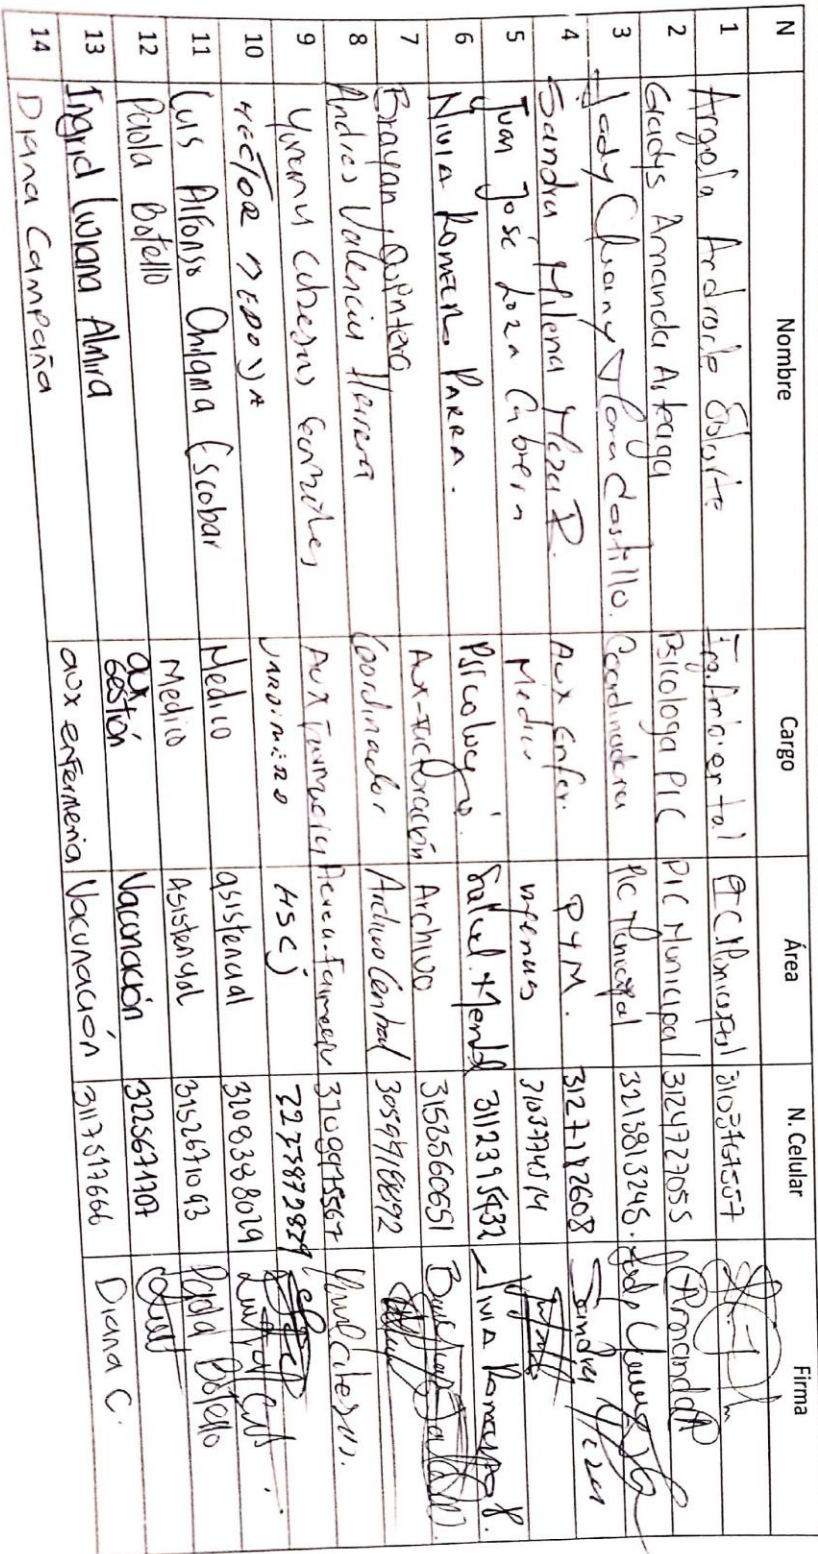 N Nombre Cargo Área N. Celular Firma
1 Angela Andrade Ing. Ambiental PIC Municipal 3103767557
2 Gladys Amanda Arteaga Psicologa PIC PIC Municipal 3124727055 Amanda A
3 Castillo. Coordinadora PIC Municipal 3213813245.
4 Sandra Milena Meza R. Aux Enfer. PYM. 3127182608 Sandra Meza
5 Juan José Loza Cabrera Medico 3103774514
6 Nivia Romero Parra. Psicologa. Salud. Mental 3112395432 Nivia Romero P.
7 Brayan Quintero Aux-facturación Archivo 3153560651
8 Andres Valencia Herrera Coordinador Archivo Central
9 Aux Farmacia 3709975567
10 HECTOR JARDINERO HSCJ
11 Luis Alfonso Escobar Medico asistencial 3208388029
12 Paola Botello Medico Asistencial 3152671093 Paola Botello
13 Ingrid Almira aux Gestión Vacunación 3225671707
14 Diana Campaña aux enfermeria Vacunación 3117517666 Diana C.